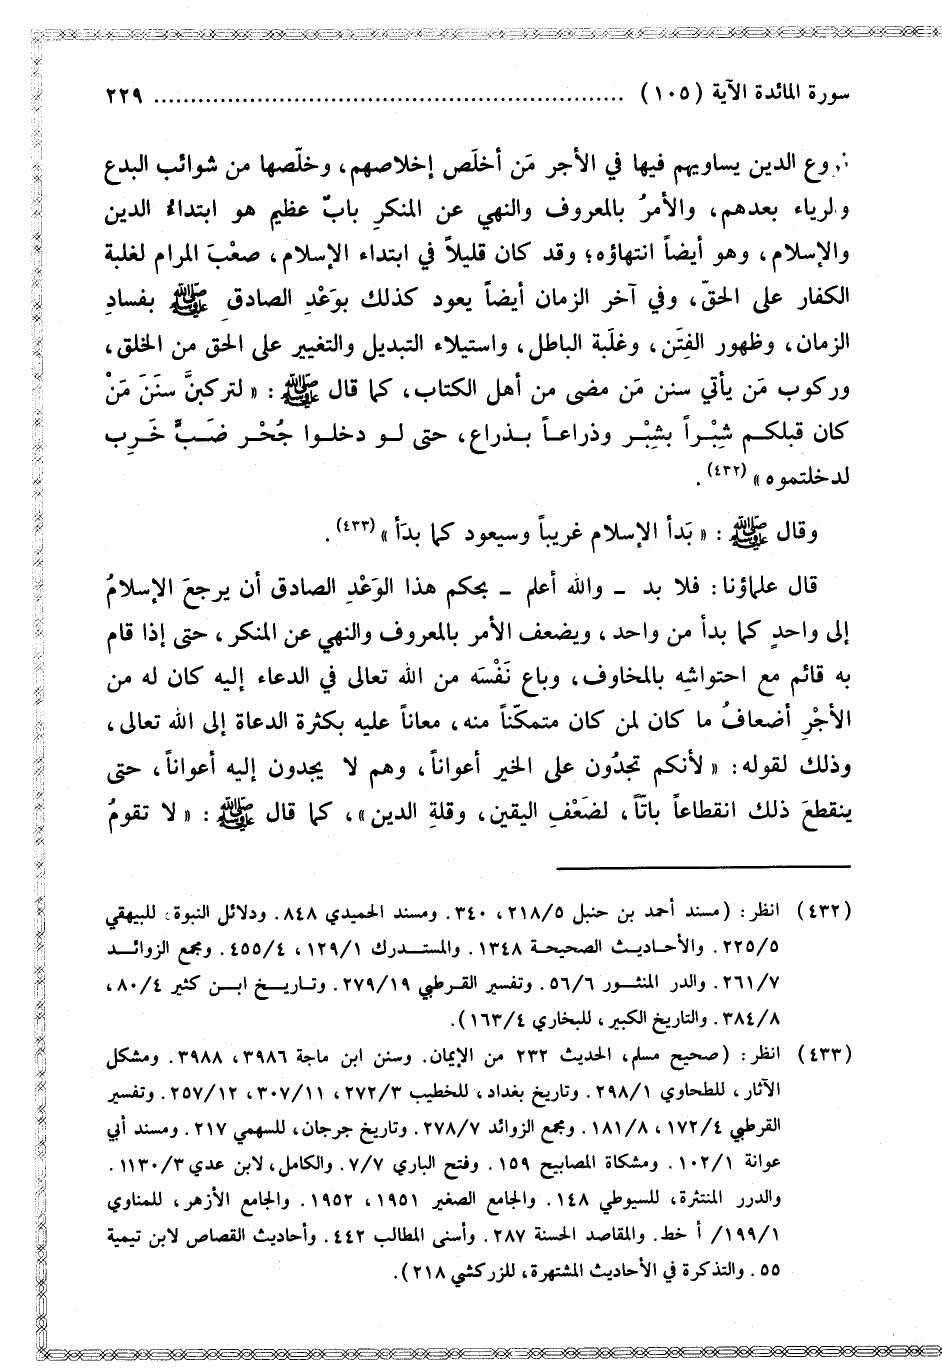 سورة المائدة الآية (١٠٥) ............................................................ ٢٢٩
وع الدين يساويهم فيها في الأجر مَن أخلَص إخلاصهم، وخلّصها من شوائب البدع
والرياء بعدهم، والأمرُ بالمعروف والنهي عن المنكرِ بابٌ عظيم هو ابتداءُ الدين
والإسلام، وهو أيضاً انتهاؤه؛ وقد كان قليلاً في ابتداء الإسلام، صعْبَ المرام لغلبة
الكفار على الحقّ، وفي آخر الزمان أيضاً يعود كذلك بوَعْدِ الصادقِ ﷺ بفسادِ
الزمان، وظهور الفِتَن، وغلَبة الباطل، واستيلاء التبديل والتغيير على الحق من الخلق،
وركوب مَن يأتي سنن مَن مضى من أهل الكتاب، كما قال ﷺ: «لتركبنَّ سنَنَ مَنْ
كان قبلكم شِبْراً بشِبْر وذراعاً بذراع، حتى لو دخلوا جُحْر ضَبٍّ خَرِب
لدخلتموه»(٤٣٢).
وقال ﷺ: «بَدأ الإسلام غريباً وسيعود كما بدَأ»(٤٣٣).
قال علماؤنا: فلا بد - والله أعلم - بحكم هذا الوَعْدِ الصادق أن يرجعَ الإسلامُ
إلى واحدٍ كما بدأ من واحد، ويضعف الأمر بالمعروف والنهي عن المنكر، حتى إذا قام
به قائم مع احتواشِه بالمخاوف، وباع نَفْسَه من الله تعالى في الدعاء إليه كان له من
الأجْرِ أضعافُ ما كان لمن كان متمكّناً منه، معاناً عليه بكثرة الدعاة إلى الله تعالى،
وذلك لقوله: «لأنكم تجدُون على الخير أعواناً، وهم لا يجدون إليه أعواناً، حتى
ينقطعَ ذلك انقطاعاً باتّاً، لضَعْفِ اليقين، وقلةِ الدين»، كما قال ﷺ: «لا تقومُ
(٤٣٢) انظر: (مسند أحمد بن حنبل ٢١٨/٥، ٣٤٠. ومسند الحميدي ٨٤٨. ودلائل النبوة، للبيهقي
٢٢٥/٥. والأحاديث الصحيحة ١٣٤٨. والمستدرك ١٢٩/١، ٤٥٥/٤. ومجمع الزوائد
٢٦١/٧. والدر المنثور ٥٦/٦. وتفسير القرطبي ٢٧٩/١٩. وتاريخ ابن كثير ٨٠/٤،
٣٨٤/٨. والتاريخ الكبير، للبخاري ١٦٣/٤).
(٤٣٣) انظر: (صحيح مسلم، الحديث ٢٣٢ من الإيمان. وسنن ابن ماجة ٣٩٨٦، ٣٩٨٨. ومشكل
الآثار، للطحاوي ٢٩٨/١. وتاريخ بغداد، للخطيب ٢٧٢/٣، ٣٠٧/١١، ٢٥٧/١٢. وتفسير
القرطبي ١٧٢/٤، ١٨١/٨. ومجمع الزوائد ٢٧٨/٧. وتاريخ جرجان، للسهمي ٢١٧. ومسند أبي
عوانة ١٠٢/١. ومشكاة المصابيح ١٥٩. وفتح الباري ٧/٧. والكامل، لابن عدي ١١٣٠/٣.
والدرر المنتثرة، للسيوطي ١٤٨. والجامع الصغير ١٩٥١، ١٩٥٢. والجامع الأزهر، للمناوي
١٩٩/١/ أ خط. والمقاصد الحسنة ٢٨٧. وأسنى المطالب ٤٤٢. وأحاديث القصاص لابن تيمية
٥٥. والتذكرة في الأحاديث المشتهرة، للزركشي ٢١٨).